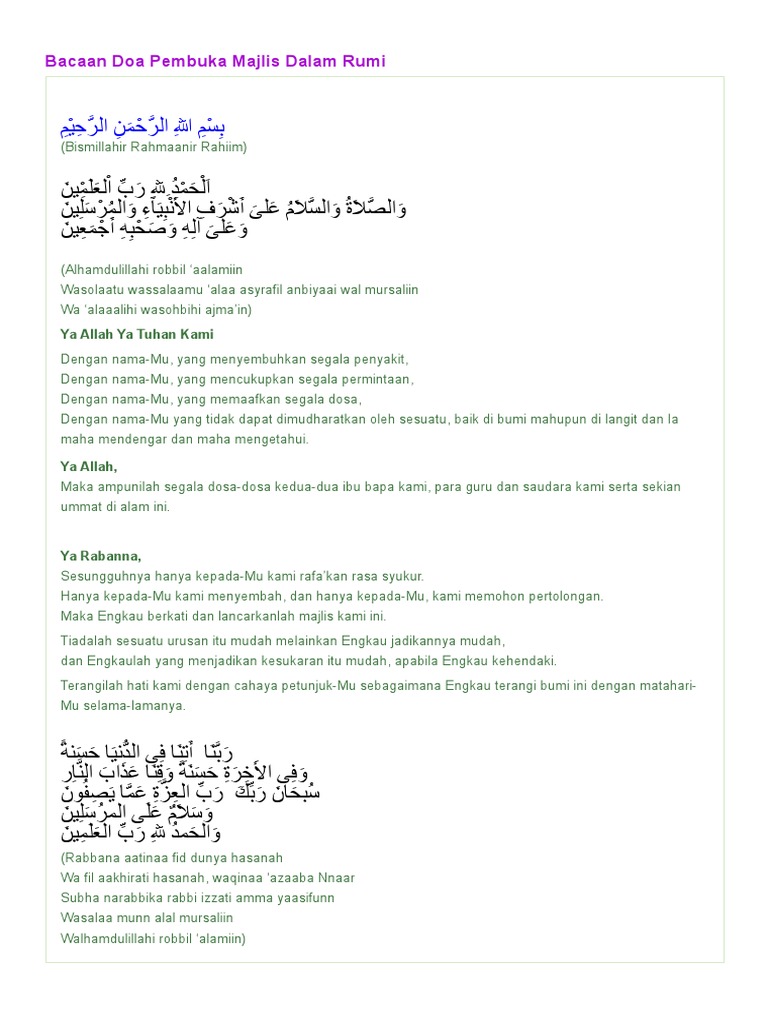 Bacaan Doa Pembuka Majlis Dalam Rumi
بِسْمِ اللهِ الرَّحْمَنِ الرَّحِيْمِ
(Bismillahir Rahmaanir Rahiim)
اَلْحَمْدُ ِللهِ رَبِّ الْعَلَمْيِنَ
وَالصَّلاَةُ وَالسَّلاَمُ عَلىَ أَشْرَفِ الأَنْبِيَآءِ وَالمُرْسَلِينَ
وَعَلىَ آلِهِ وَصَحْبِهِ أَجْمَعِينَ
(Alhamdulillahi robbil ‘aalamiin
Wasolaatu wassalaamu ‘alaa asyrafil anbiyaai wal mursaliin
Wa ‘alaaalihi wasohbihi ajma’in)
Ya Allah Ya Tuhan Kami
Dengan nama-Mu, yang menyembuhkan segala penyakit,
Dengan nama-Mu, yang mencukupkan segala permintaan,
Dengan nama-Mu, yang memaafkan segala dosa,
Dengan nama-Mu yang tidak dapat dimudharatkan oleh sesuatu, baik di bumi mahupun di langit dan Ia
maha mendengar dan maha mengetahui.
Ya Allah,
Maka ampunilah segala dosa-dosa kedua-dua ibu bapa kami, para guru dan saudara kami serta sekian
ummat di alam ini.
Ya Rabanna,
Sesungguhnya hanya kepada-Mu kami rafa’kan rasa syukur.
Hanya kepada-Mu kami menyembah, dan hanya kepada-Mu, kami memohon pertolongan.
Maka Engkau berkati dan lancarkanlah majlis kami ini.
Tiadalah sesuatu urusan itu mudah melainkan Engkau jadikannya mudah,
dan Engkaulah yang menjadikan kesukaran itu mudah, apabila Engkau kehendaki.
Terangilah hati kami dengan cahaya petunjuk-Mu sebagaimana Engkau terangi bumi ini dengan matahari-
Mu selama-lamanya.
رَبَّنَا أَتِنَا فِي الدُّنيَا حَسَنةً
وَفِى الأَخِرَةِ حَسَنَةً وَقِنَا عَذَابَ النَّارِ
سُبحَانَ رَبِّكَ رَبِّ العِزَّةِ عَمَّا يَصِفُونَ
وَسَلاَمٌ عَلَى المرُسَلِينَ
وَالحَمدُ للهِ رَبِّ العَلَمِينَ
(Rabbana aatinaa fid dunya hasanah
Wa fil aakhirati hasanah, waqinaa ‘azaaba Nnaar
Subha narabbika rabbi izzati amma yaasifunn
Wasalaa munn alal mursaliin
Walhamdulillahi robbil ‘alamiin)